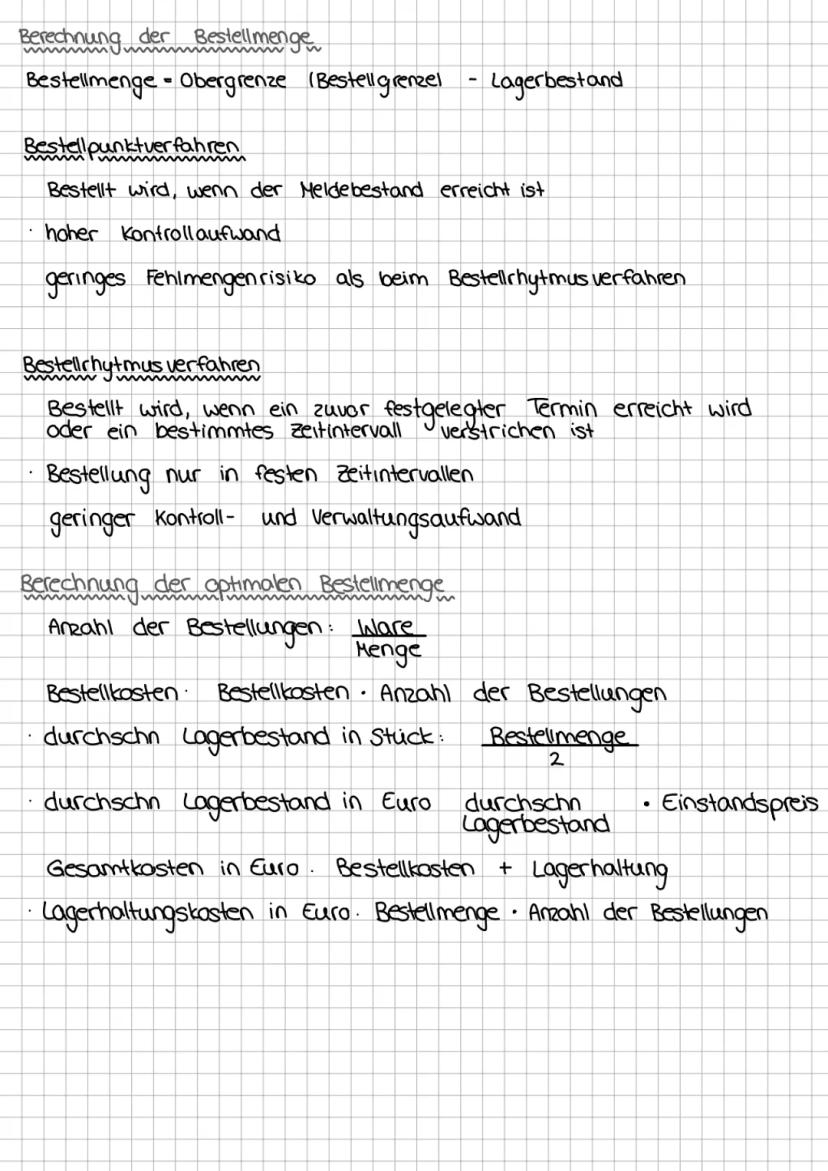 Berechnung der Bestellmenge
Bestellmenge = Obergrenze (Bestellgrenze) - Lagerbestand
Bestellpunktverfahren
Bestellt wird, wenn der Meldebestand erreicht ist
· hoher Kontrollaufwand
geringes Fehlmengenrisiko als beim Bestellrhytmusverfahren
Bestellrhytmusverfahren
Bestellt wird, wenn ein zuvor festgelegter Termin erreicht wird
oder ein bestimmtes Zeitintervall verstrichen ist
· Bestellung nur in festen Zeitintervallen
geringer Kontroll- und Verwaltungsaufwand
Berechnung der optimalen Bestellmenge
Anzahl der Bestellungen: Ware
Menge
Bestellkosten· Bestellkosten · Anzahl der Bestellungen
· durchschn Lagerbestand in Stück: Bestellmenge
2
· durchschn Lagerbestand in Euro durchschn · Einstandspreis
Lagerbestand
Gesamtkosten in Euro. Bestellkosten + Lagerhaltung
· Lagerhaltungskosten in Euro. Bestellmenge · Anzahl der Bestellungen